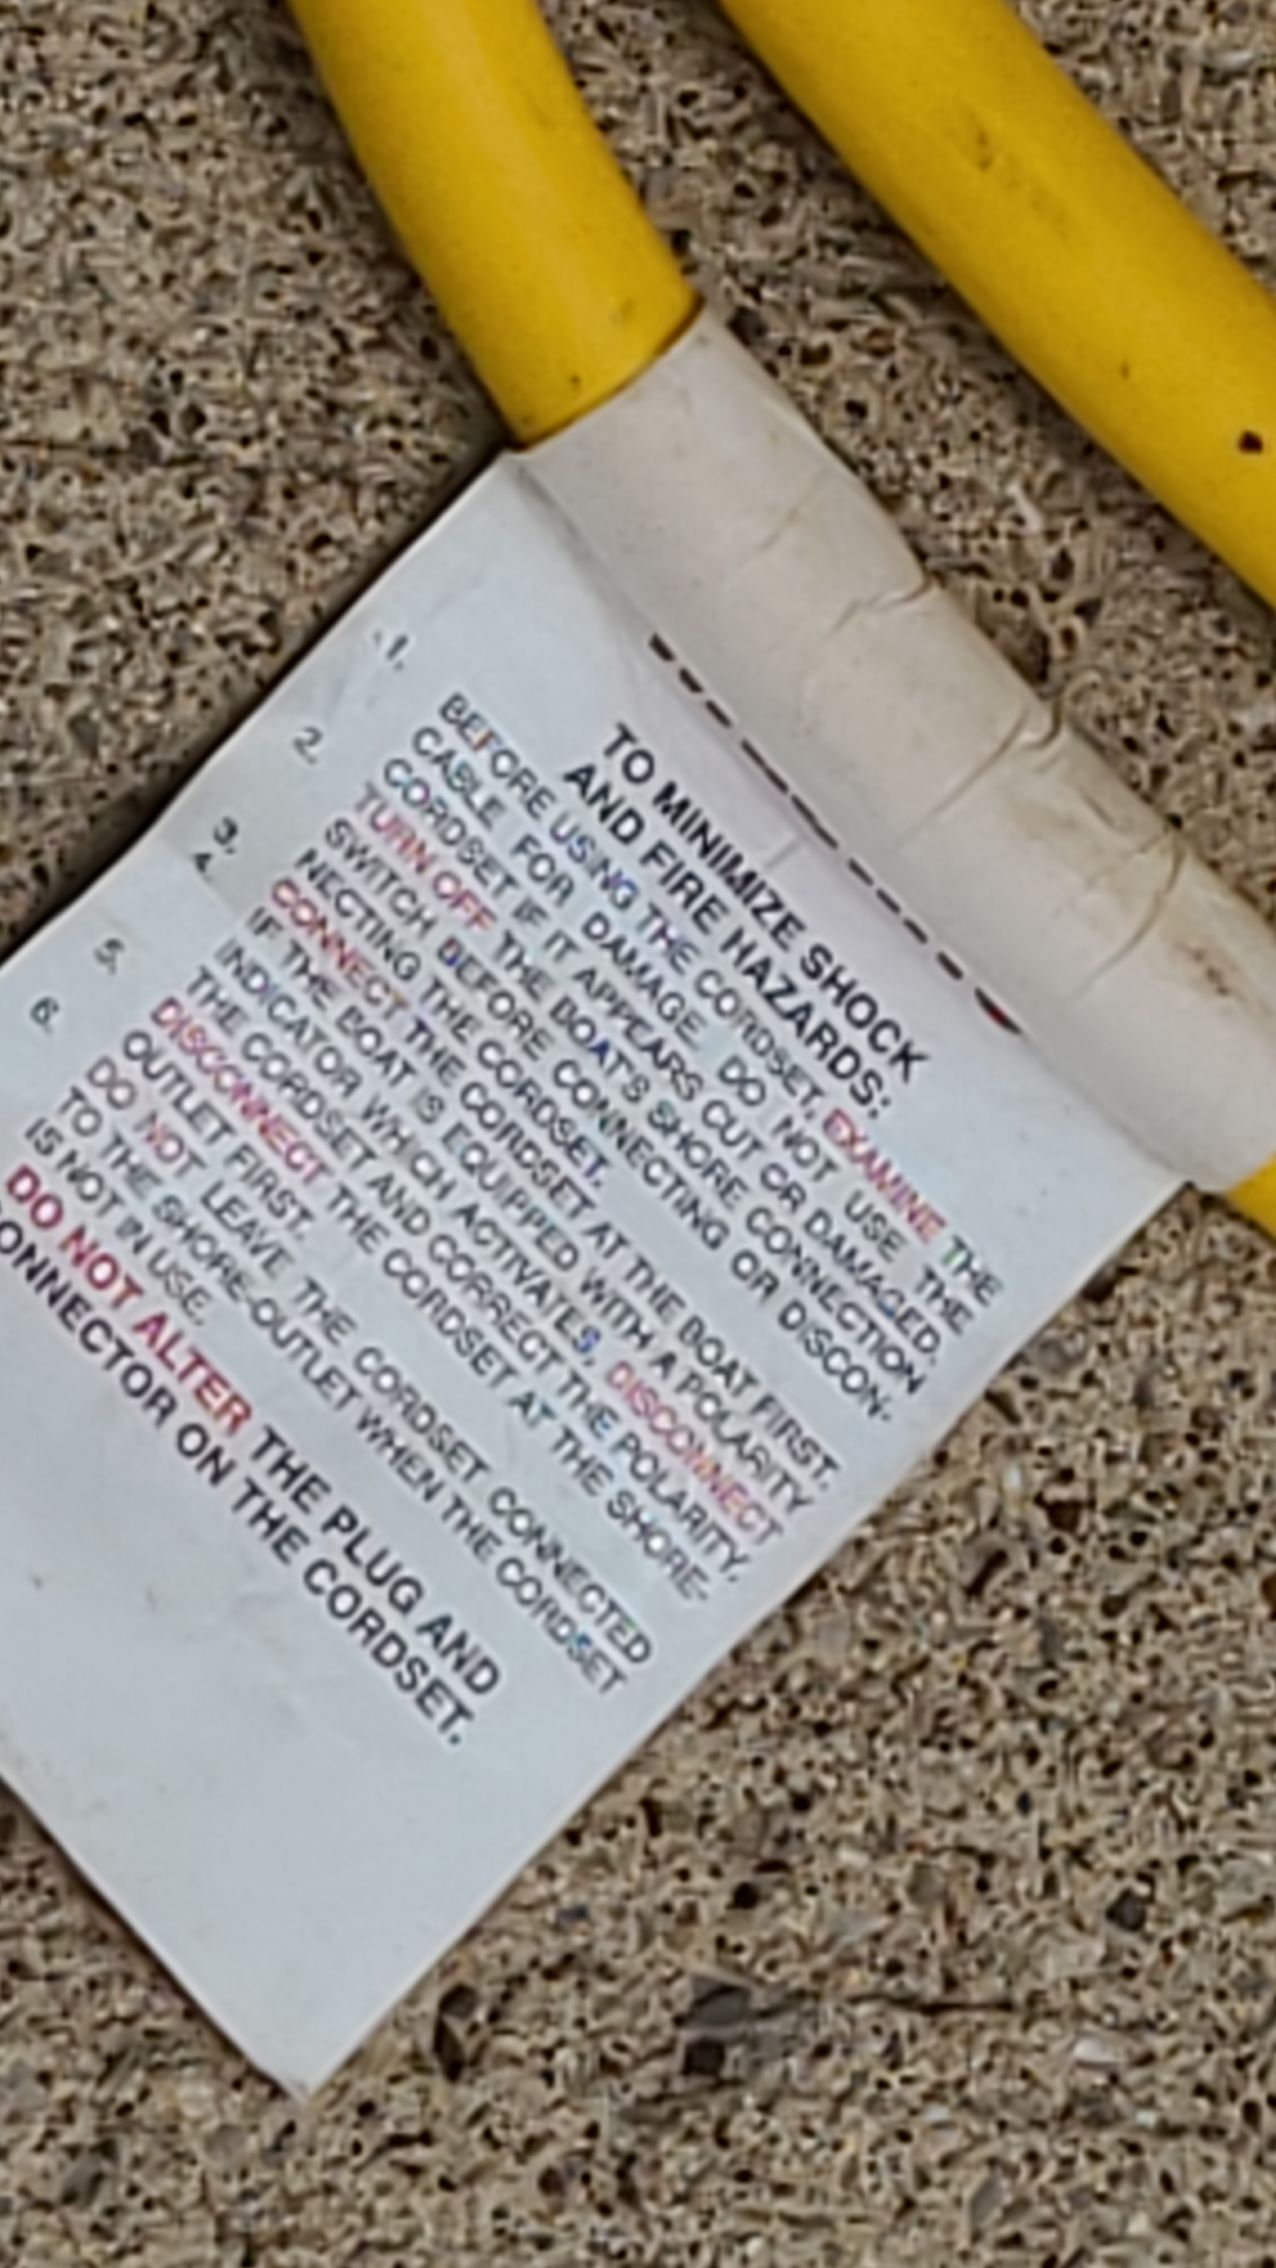 TO MINIMIZE SHOCK
AND FIRE HAZARDS:
1. BEFORE USING THE CORDSET, EXAMINE THE
CABLE FOR DAMAGE. DO NOT USE THE
CORDSET IF IT APPEARS CUT OR DAMAGED.
2. TURN OFF THE BOAT'S SHORE CONNECTION
SWITCH BEFORE CONNECTING OR DISCON-
NECTING THE CORDSET.
3. CONNECT THE CORDSET AT THE BOAT FIRST.
4. IF THE BOAT IS EQUIPPED WITH A POLARITY
INDICATOR WHICH ACTIVATES, DISCONNECT
THE CORDSET AND CORRECT THE POLARITY.
5. DISCONNECT THE CORDSET AT THE SHORE-
OUTLET FIRST.
6. DO NOT LEAVE THE CORDSET CONNECTED
TO THE SHORE-OUTLET WHEN THE CORDSET
IS NOT IN USE.
DO NOT ALTER THE PLUG AND
CONNECTOR ON THE CORDSET.